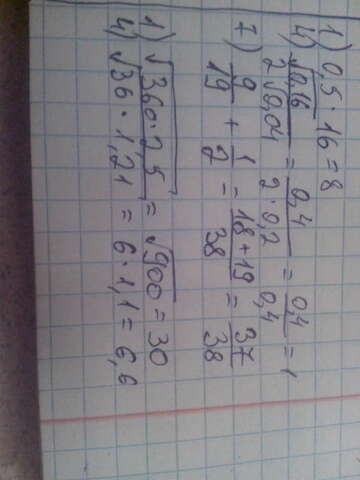 1) 0,5 · 16 = 8
4) √0,16 / 2√0,04 = 0,4 / 2·0,2 = 0,4 / 0,4 = 1
7) 9/19 + 1/2 = 18 + 19 / 38 = 37/38
1) √360·2,5 = √900 = 30
4) √36 · 1,21 = 6 · 1,1 = 6,6